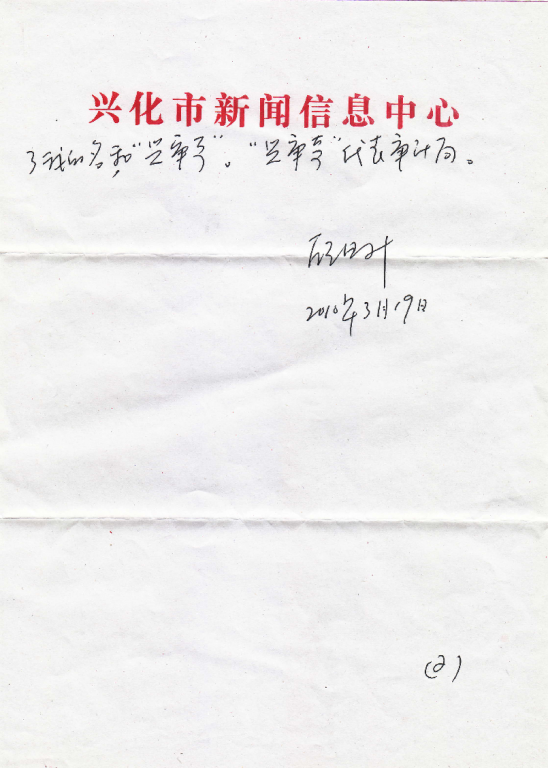 兴化市新闻信息中心
了我的名和“兴审亭”。“兴审亭”代表审计局。
2010年3月19日
(2)